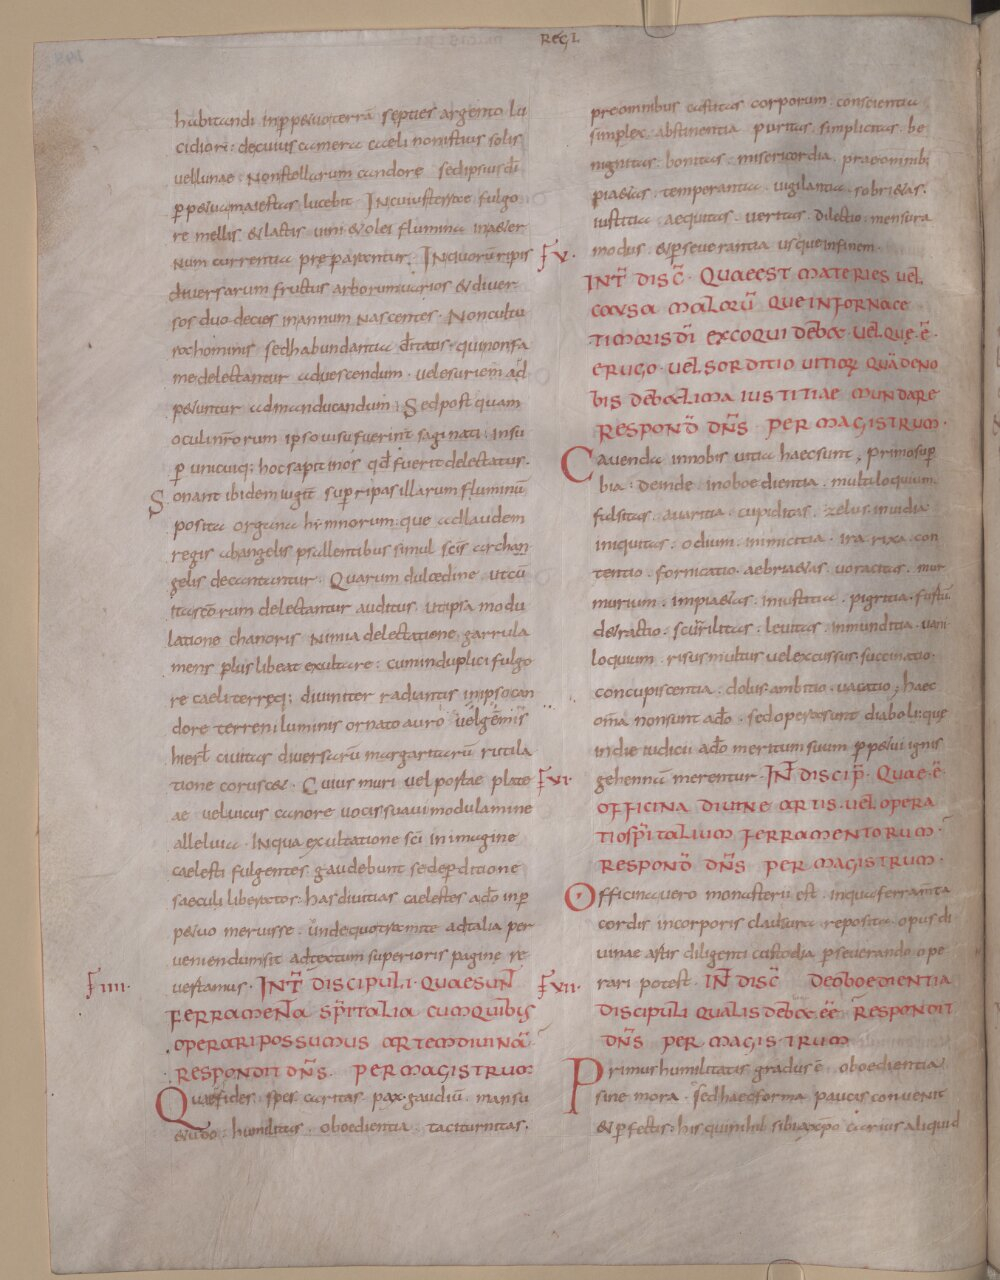 REGL
habitandi inpꝑpetuoterrā septies argento lu
cidiore: decuius camera caeli nonistius solis
vellunae. Nonstellarum candore sedipsiusdī
ꝑpetuamaiestas lucebit. Incuiusterrae fulgo
re mellis &lactis vini &olei flumina inaeter
num currentia preparantur. Inquorū ripis
diversarum fructus arborumuarios &diver
sos duo decies inannum nascentes. Noncultu
rahominis sedhabundantia dītatis. quinonfa
medelectantur advescendum. velesuriem ad
petuntur admanducandum; Sedpostquam
oculinrōrum ipsovisufuerint saginati: insu
ꝑ unicuiq; hocsapit inos qd fuerit delectatus.
Sonant ibidem iugit supꝑripasillarum fluminū
posita organa hymnorum. que adlaudem
regis abangelis psallentibus simul scīs archan
gelis decantantur. Quarum dulcedine. utcū
itascōrum delectantur auditus. utipsa modu
latione chanoris nimia delectatione garrula
mens plus libeat exultare: cuminduplici fulgo
re caeli terreq; diviniter radiantis inipsocan
dore terreni luminis ornato auro vel gēmis
hierl civitas diversarū margaritarū rutila
tione coruscet. Cuius muri vel portae plate
ae velvicus canore vocissuavimodulamine
alleluia. Inqua exultatione scī inimagine
caelesti fulgentes. gaudebunt sedeperditione
saeculi liberatos: hasdivitias caelestes adō inꝑ
petuo meruisse. undequotramite adtalia per
veniendumsit adtextum superioris pagine re
vertamus. INT̄ DISCIPULI. QUAESUNT
F IIII.
FERRAMENTA SPĪTALIA CUMQUIBUS
OPERARIPOSSUMUS ARTEMDIVINĀ
RESPONDIT DN̄S. PERMAGISTRUM
Quaefides. spes. caritas. pax. gaudiū. mansu
etudo. humilitas. oboedientia. taciturnitas.
preomnibus castitas corporum. conscientia
simplex. abstinentia. puritas. simplicitas. be
nignitas. bonitas. misericordia. praeomnib;
pietas. temperantia. vigilantia. sobrietas.
iustitia. aequitas. veritas. dilectio. mensura
modus. &ꝑseverantia usqueinfinem.
F V.
INT̄ DISC̄. QUAEEST MATERIES VEL
CAUSA MALORŪ QUEINFORNACE
TIMORISDĪ EXCOQUI DEBET. VEL QUE. Ē.
ERUGO. VEL SORDITIO VITIORꝜ. QUĀDENO
BIS DEBET LIMA IUSTITIAE MUNDARE
RESPONĐ DN̄S. PER MAGISTRUM.
Cavenda innobis vitia haecsunt; primosuꝑ
bia. deinde inoboedientia. multiloquium.
falsitas. avaritia. cupiditas. zelus. invidia
iniquitas. odium. inimicitia. ira. rixa. con
tentio. fornicatio. aebrietas. voracitas. mur
murium. impietas. iniustitia. pigritia. furtū.
detractio. scurrilitas. levitas. inmunditia. vani
loquium. risusmultus vel excussus. succinatio.
concupiscentia. dolus. ambitio. vacatio; haec
om̄a nonsunt adō. sedoperasunt diaboli: que
indie iudicii adō meritum suum ꝑpetui ignis
gehennam merentur. INT̄ DISCIP̄. QUAE. Ē
F VI.
OFFICINA DIVINE ARTIS. VEL OPERA
TIOSPĪTALIUM FERRAMENTORUM.
RESPONĐ DN̄S PER MAGISTRUM.
Officina vero monasterii est. inqua ferramta
cordis incorporis clausura reposita. opusdi
vinae artis diligenti custodia ꝑseverando ope
rari potest. INT̄ DISC̄ DEOBOEDIENTIA
F VII.
DISCIPULI QUALISDEBET. ĒĒ. RESPONDIT
DN̄S PER MAGISTRUM
Primus humilitatis gradus ē oboedientia
sine mora. Sedhaecforma paucis convenit
&ꝑfectis: his quinihil sibiaxpō carius aliquid